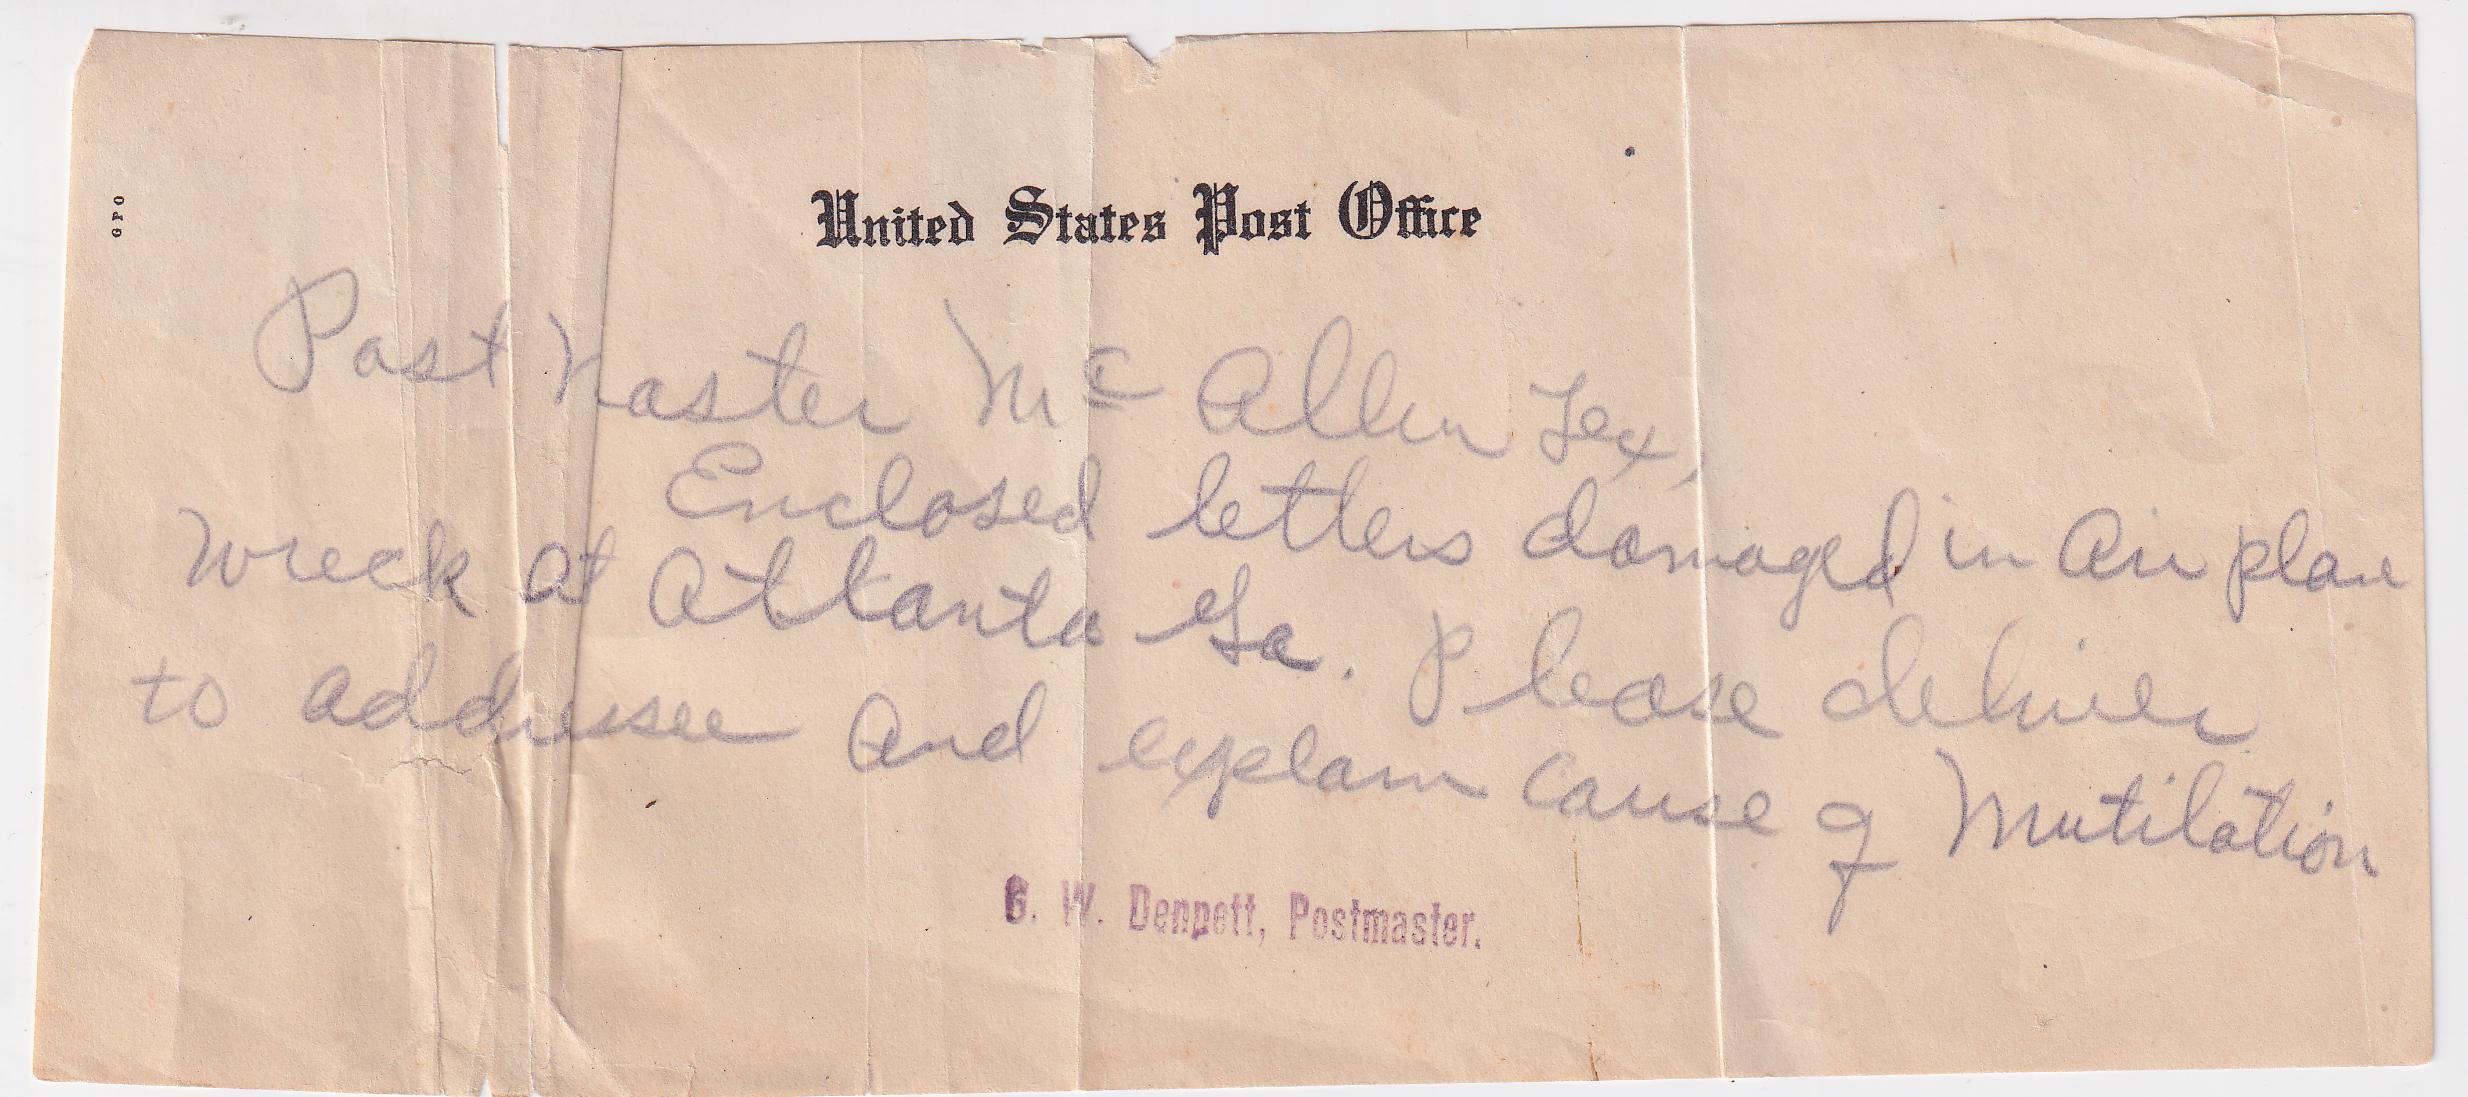 GPO
United States Post Office
Post Master Mc Allen Tex,
Enclosed letters damaged in Air plane
wreck at Atlanta Ga. Please deliver
to addressee and explain cause of Mutilation
W. Dennett, Postmaster.